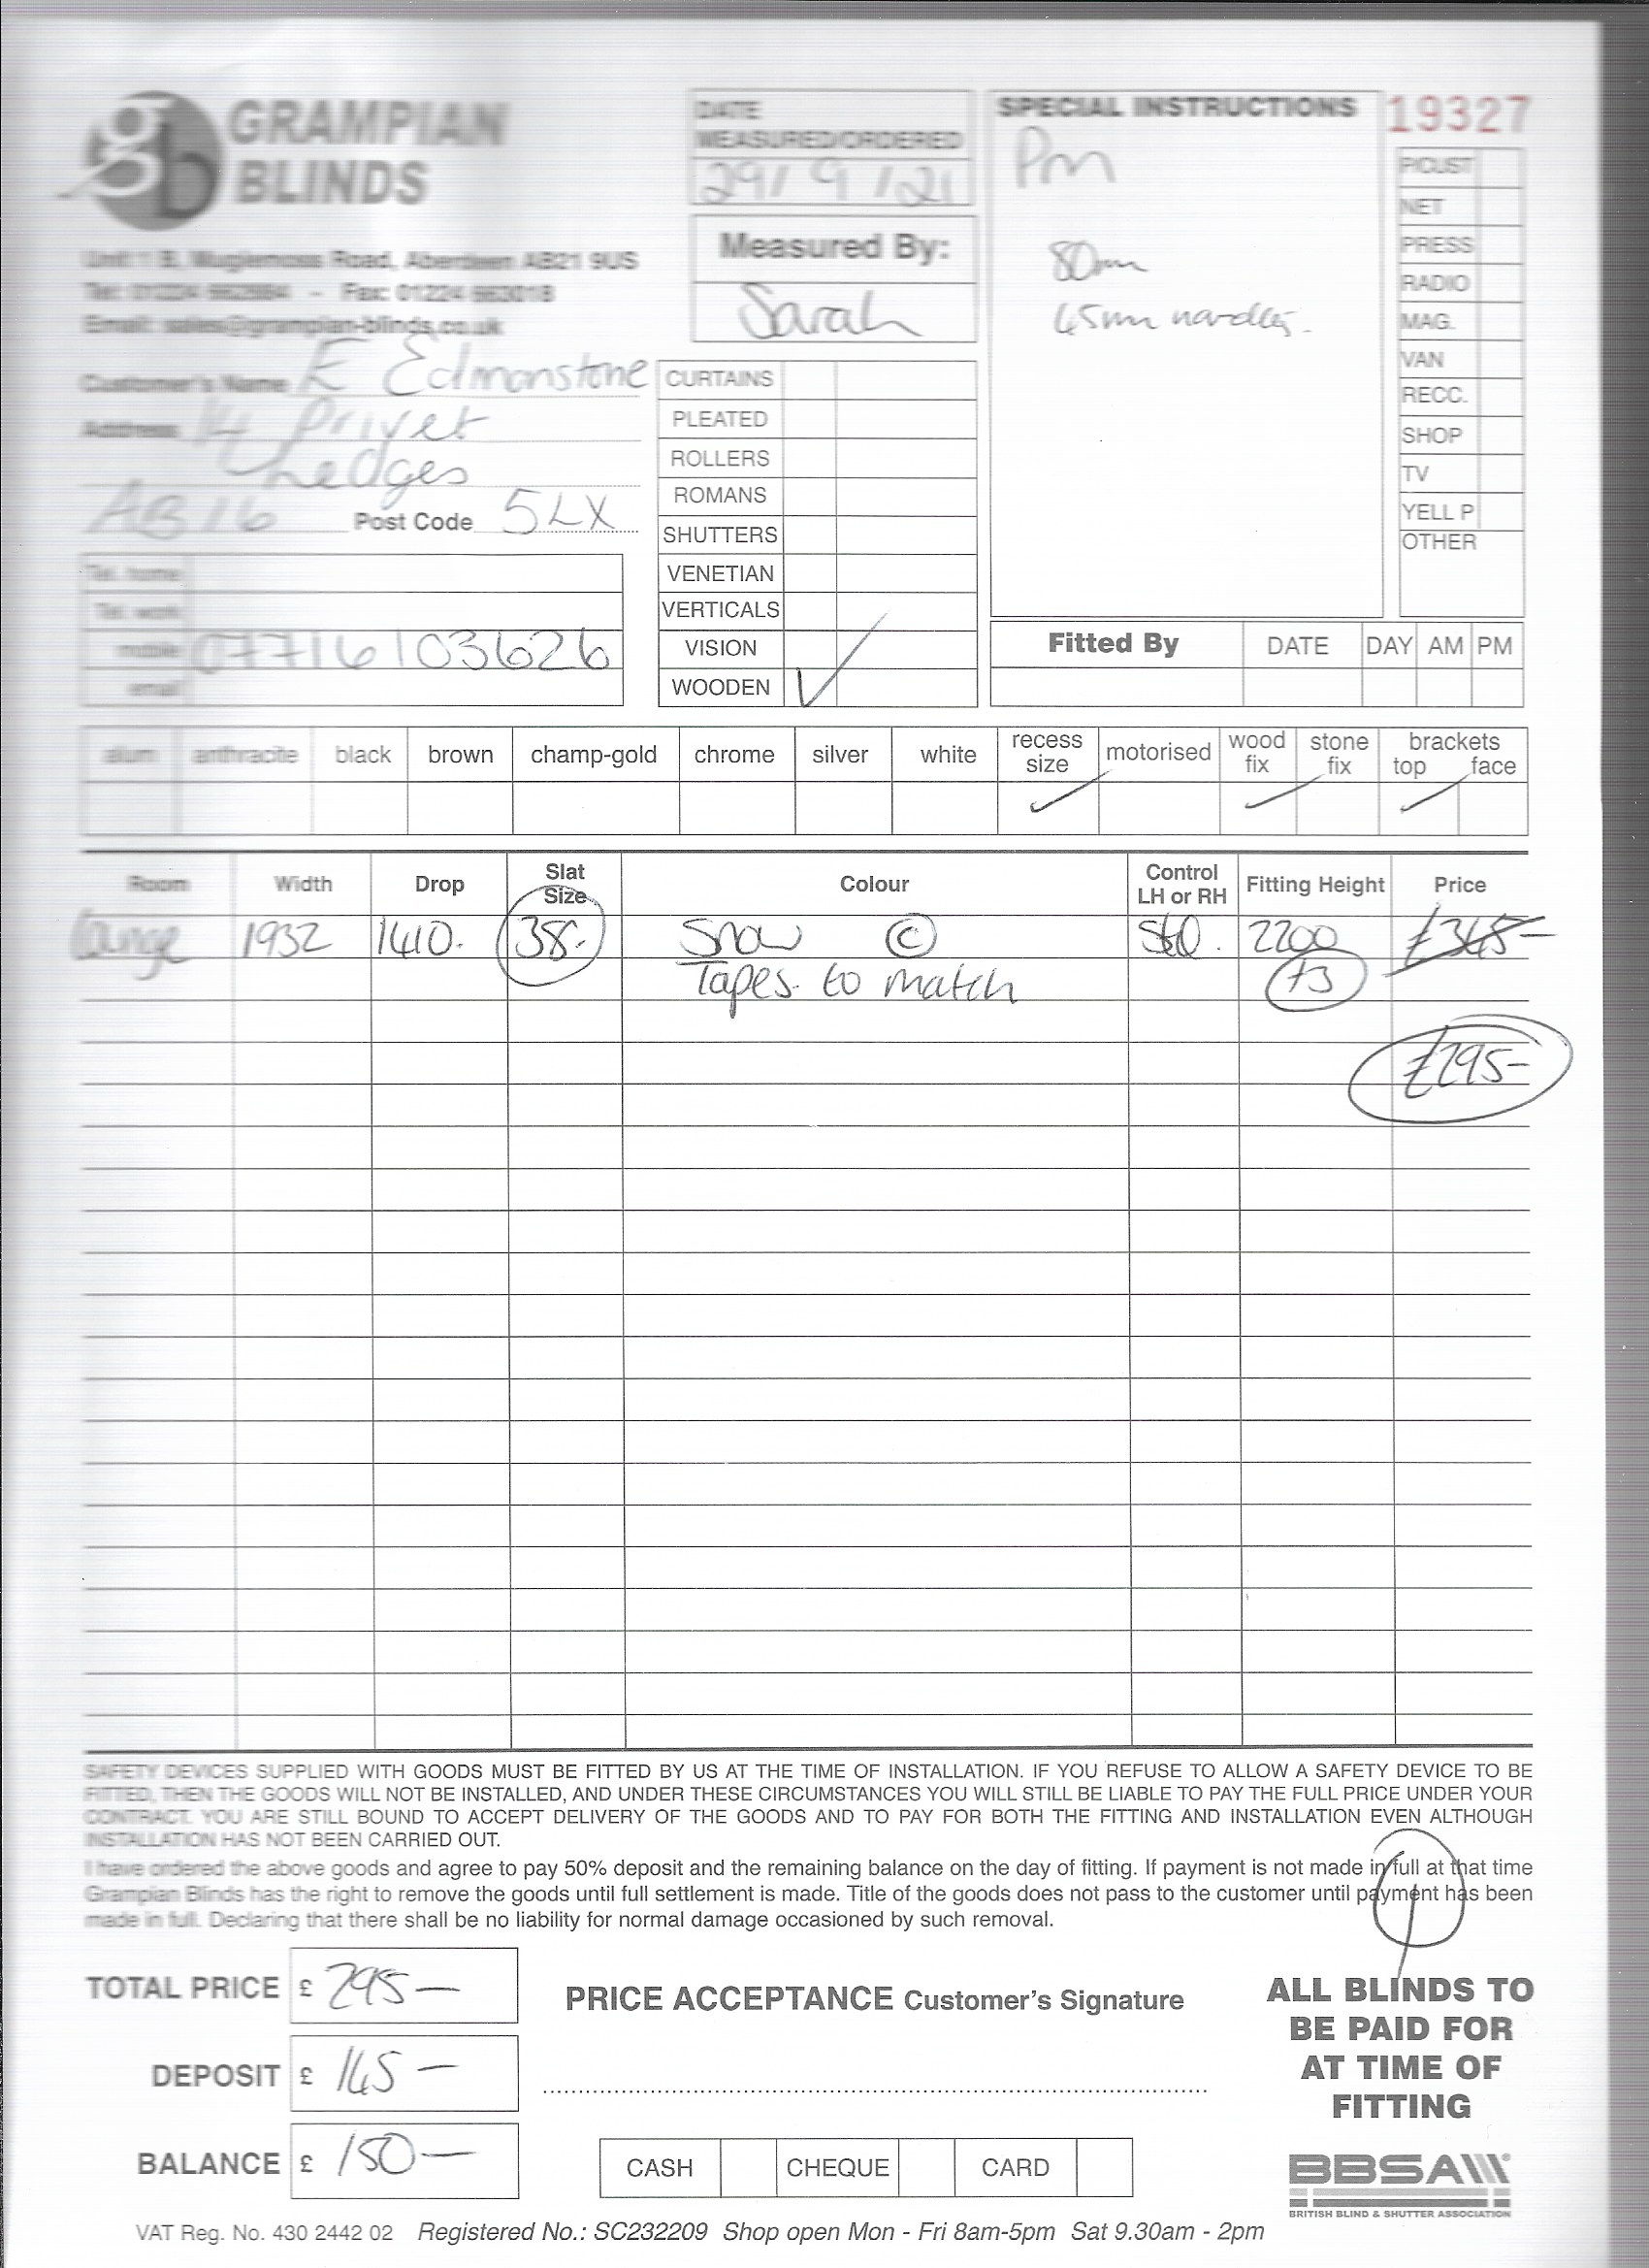 GRAMPIAN
BLINDS
Unit 1 B, Mugiemoss Road, Aberdeen AB21 9US
Tel: 01224 – Fax: 01224 663018
Email: sales@grampian-blinds.co.uk
DATE
MEASURED/ORDERED
29/9/21
Measured By:
Sarah
SPECIAL INSTRUCTIONS
Pm
80mm
45mm
19327
P/CUST
NET
PRESS
RADIO
MAG.
VAN
RECC.
SHOP
TV
YELL P
OTHER
Customer's Name E Edmonstone
Address 14 Privet
Hedges
AB16 Post Code 5LX
Tel. home
Tel. work
mobile 07716103626
email
CURTAINS
PLEATED
ROLLERS
ROMANS
SHUTTERS
VENETIAN
VERTICALS
VISION
WOODEN ✓
Fitted By DATE DAY AM PM
alum anthracite black brown champ-gold chrome silver white recess size motorised wood fix stone fix brackets top face
✓ ✓ ✓
Room Width Drop Slat Size Colour Control LH or RH Fitting Height Price
Lounge 1932 1410. 38. Snow © Std. 2200 £345-
Tapes to match +3
£295-
SAFETY DEVICES SUPPLIED WITH GOODS MUST BE FITTED BY US AT THE TIME OF INSTALLATION. IF YOU REFUSE TO ALLOW A SAFETY DEVICE TO BE
FITTED, THEN THE GOODS WILL NOT BE INSTALLED, AND UNDER THESE CIRCUMSTANCES YOU WILL STILL BE LIABLE TO PAY THE FULL PRICE UNDER YOUR
CONTRACT. YOU ARE STILL BOUND TO ACCEPT DELIVERY OF THE GOODS AND TO PAY FOR BOTH THE FITTING AND INSTALLATION EVEN ALTHOUGH
INSTALLATION HAS NOT BEEN CARRIED OUT.
I have ordered the above goods and agree to pay 50% deposit and the remaining balance on the day of fitting. If payment is not made in full at that time
Grampian Blinds has the right to remove the goods until full settlement is made. Title of the goods does not pass to the customer until payment has been
made in full. Declaring that there shall be no liability for normal damage occasioned by such removal.
TOTAL PRICE £ 295—
DEPOSIT £ 145—
BALANCE £ 150—
PRICE ACCEPTANCE Customer's Signature
CASH CHEQUE CARD
ALL BLINDS TO
BE PAID FOR
AT TIME OF
FITTING
BBSA
BRITISH BLIND & SHUTTER ASSOCIATION
VAT Reg. No. 430 2442 02 Registered No.: SC232209 Shop open Mon - Fri 8am-5pm Sat 9.30am - 2pm